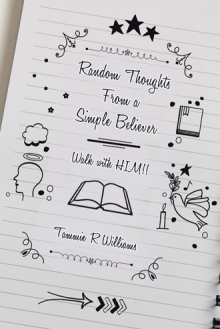 Random Thoughts
From a
Simple Believer
Walk with HIM!!
Tammie R Williams